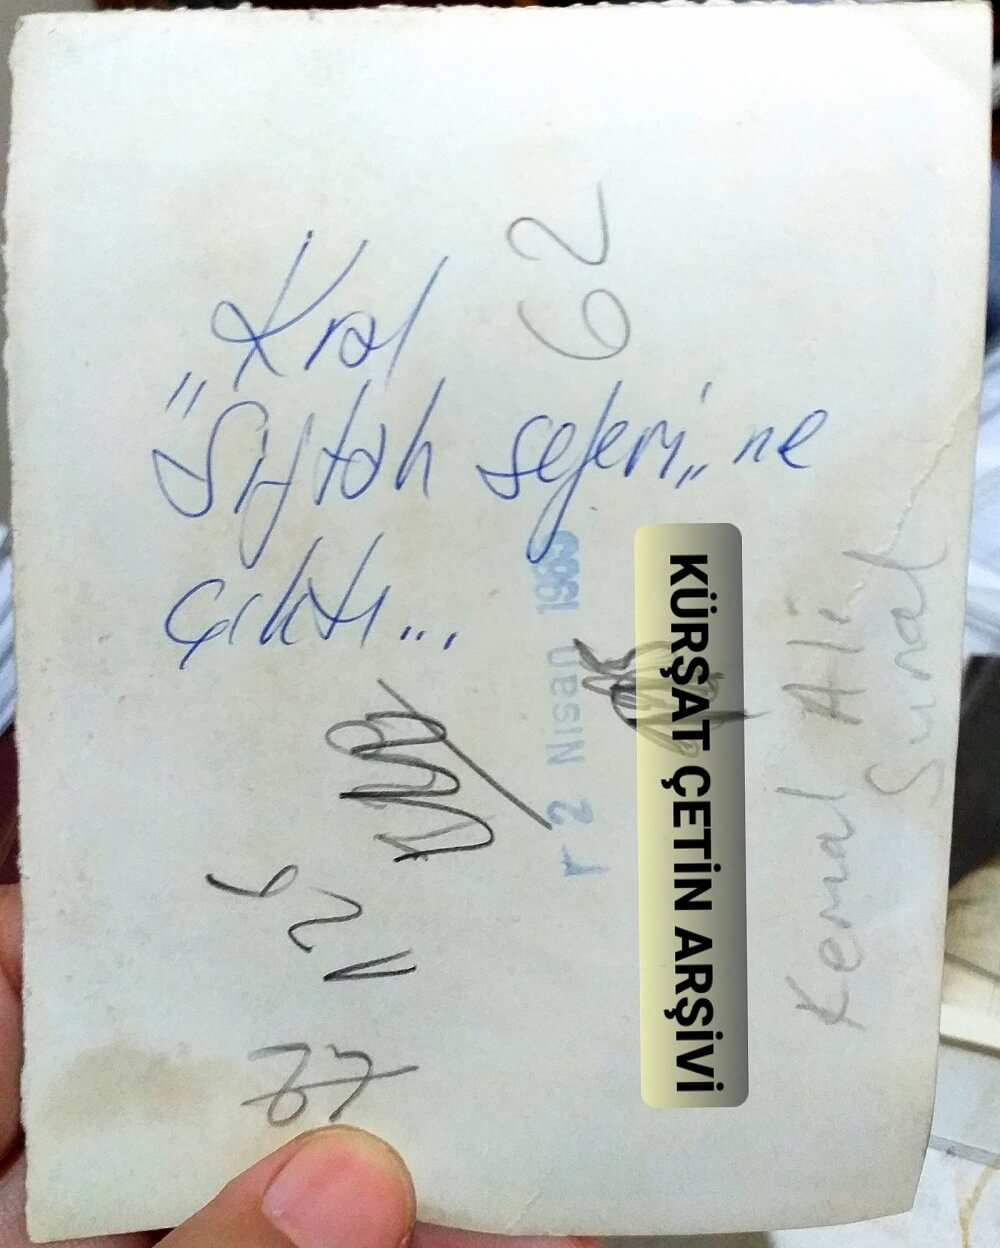 Kral
"Siftah seferi"ne
çıktı...
62
12 Nisan 1989
KÜRŞAT ÇETİN ARŞİVİ
Kemal Ali
Sunal